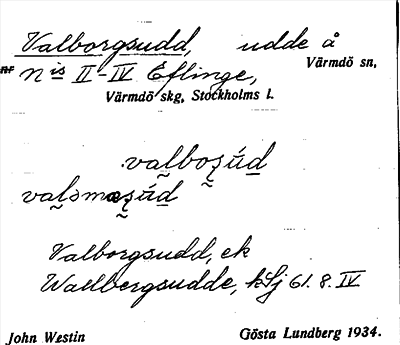 Valborgsudd, udde å
Värmdö sn,
nr Nis II-IV Eflinge,
Värmdö skg, Stockholms l.
Valborgsudd, ek
Wallbergsudde, kSj 61. 8. IV
John Westin Gösta Lundberg 1934.